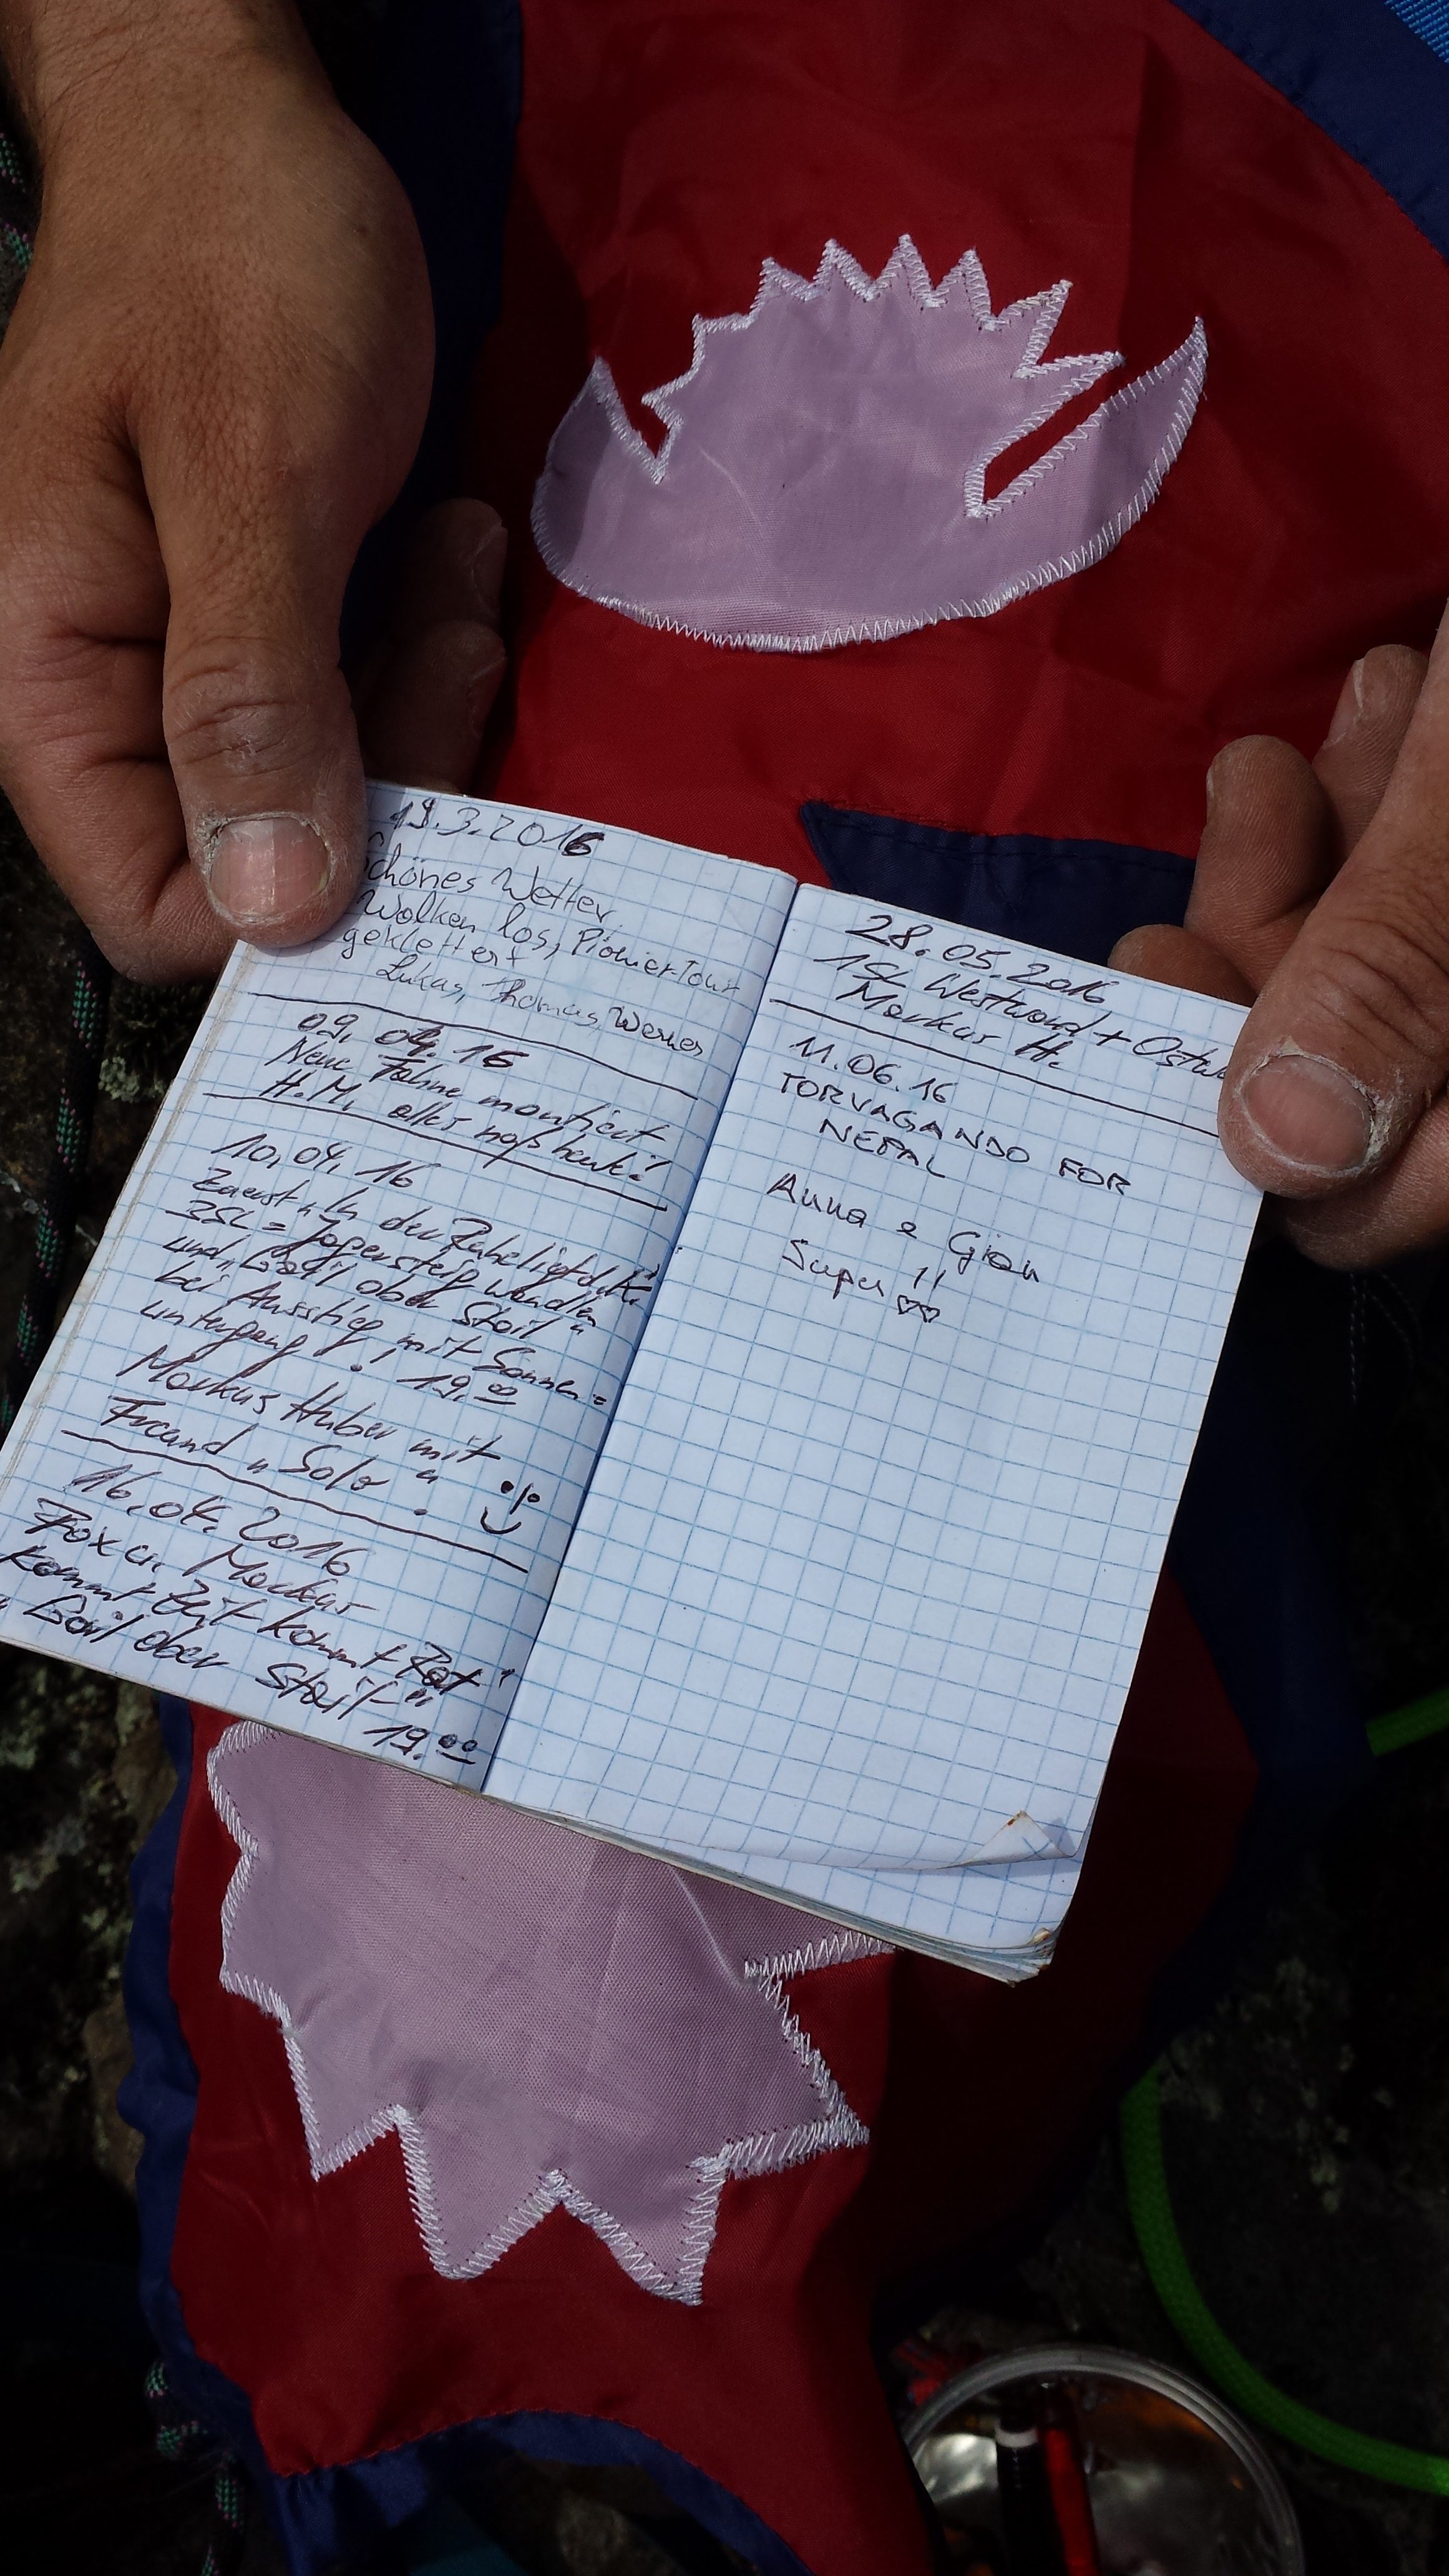 19.3.2016
Schönes Wetter,
Wolken los, Pioniertour
geklettert
Lukas, Thomas, Werner
09. 04. 16
Neue Fahne montiert
H.M. alles naß heute!
10. 04. 16
Zuerst der
3SL = Jägersteig wandln
und, "Geil ober Steil"
bei Ausstieg mit Sonnen=
untergang! 19.00
Markus Huber mit
Freund "Solo".
16.04.2016
Fox u. Markus
kommt Zeit kommt Rat"
"Geil ober Steil"
19.00
28.05.2016
1SL Westwand +
Markus H.
11.06.16
TORVAGANDO FOR
NEPAL
Anna e Gion
Super !! ♡♡